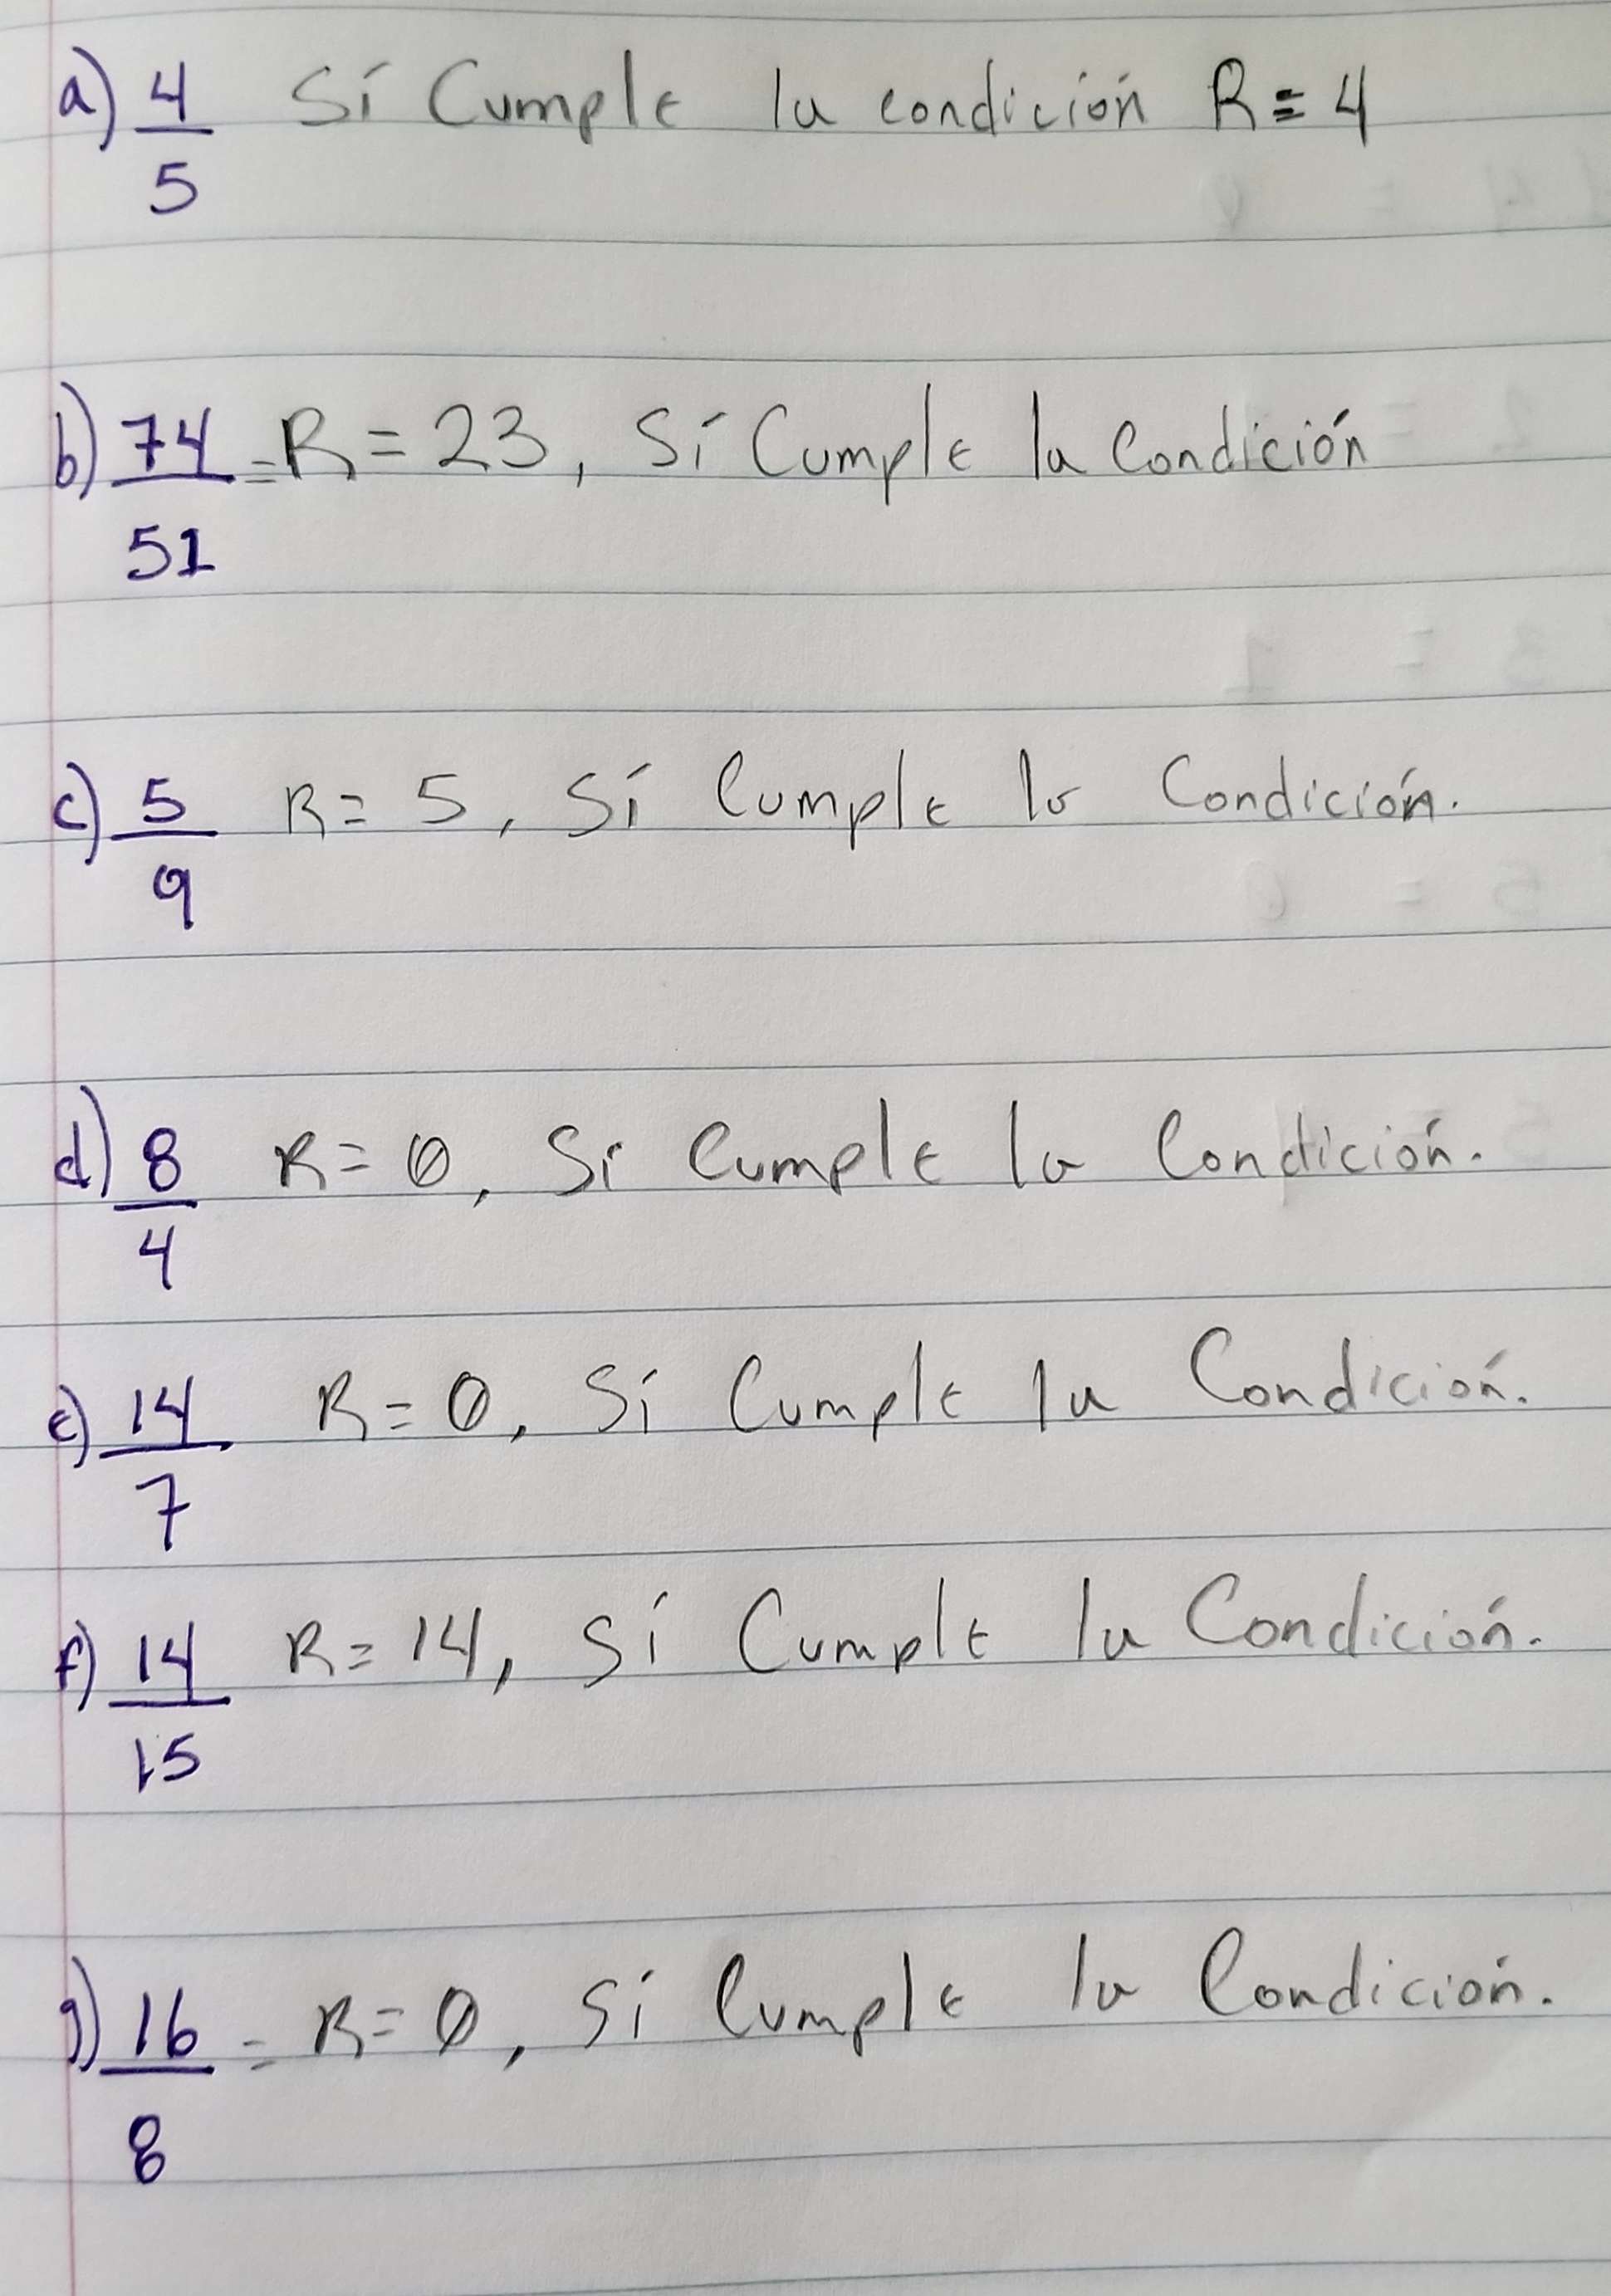 a) 4 Sí Cumple la condición R = 4
5
b) 74 = R = 23, Sí Cumple la Condición
51
c) 5 R = 5, Sí Cumple la Condición.
9
d) 8 R = 0, Si Cumple la Condición.
4
e) 14 R = 0, Sí Cumple la Condición.
7
f) 14 R = 14, Sí Cumple la Condición.
15
g) 16 = R = 0, Sí Cumple la Condición.
8